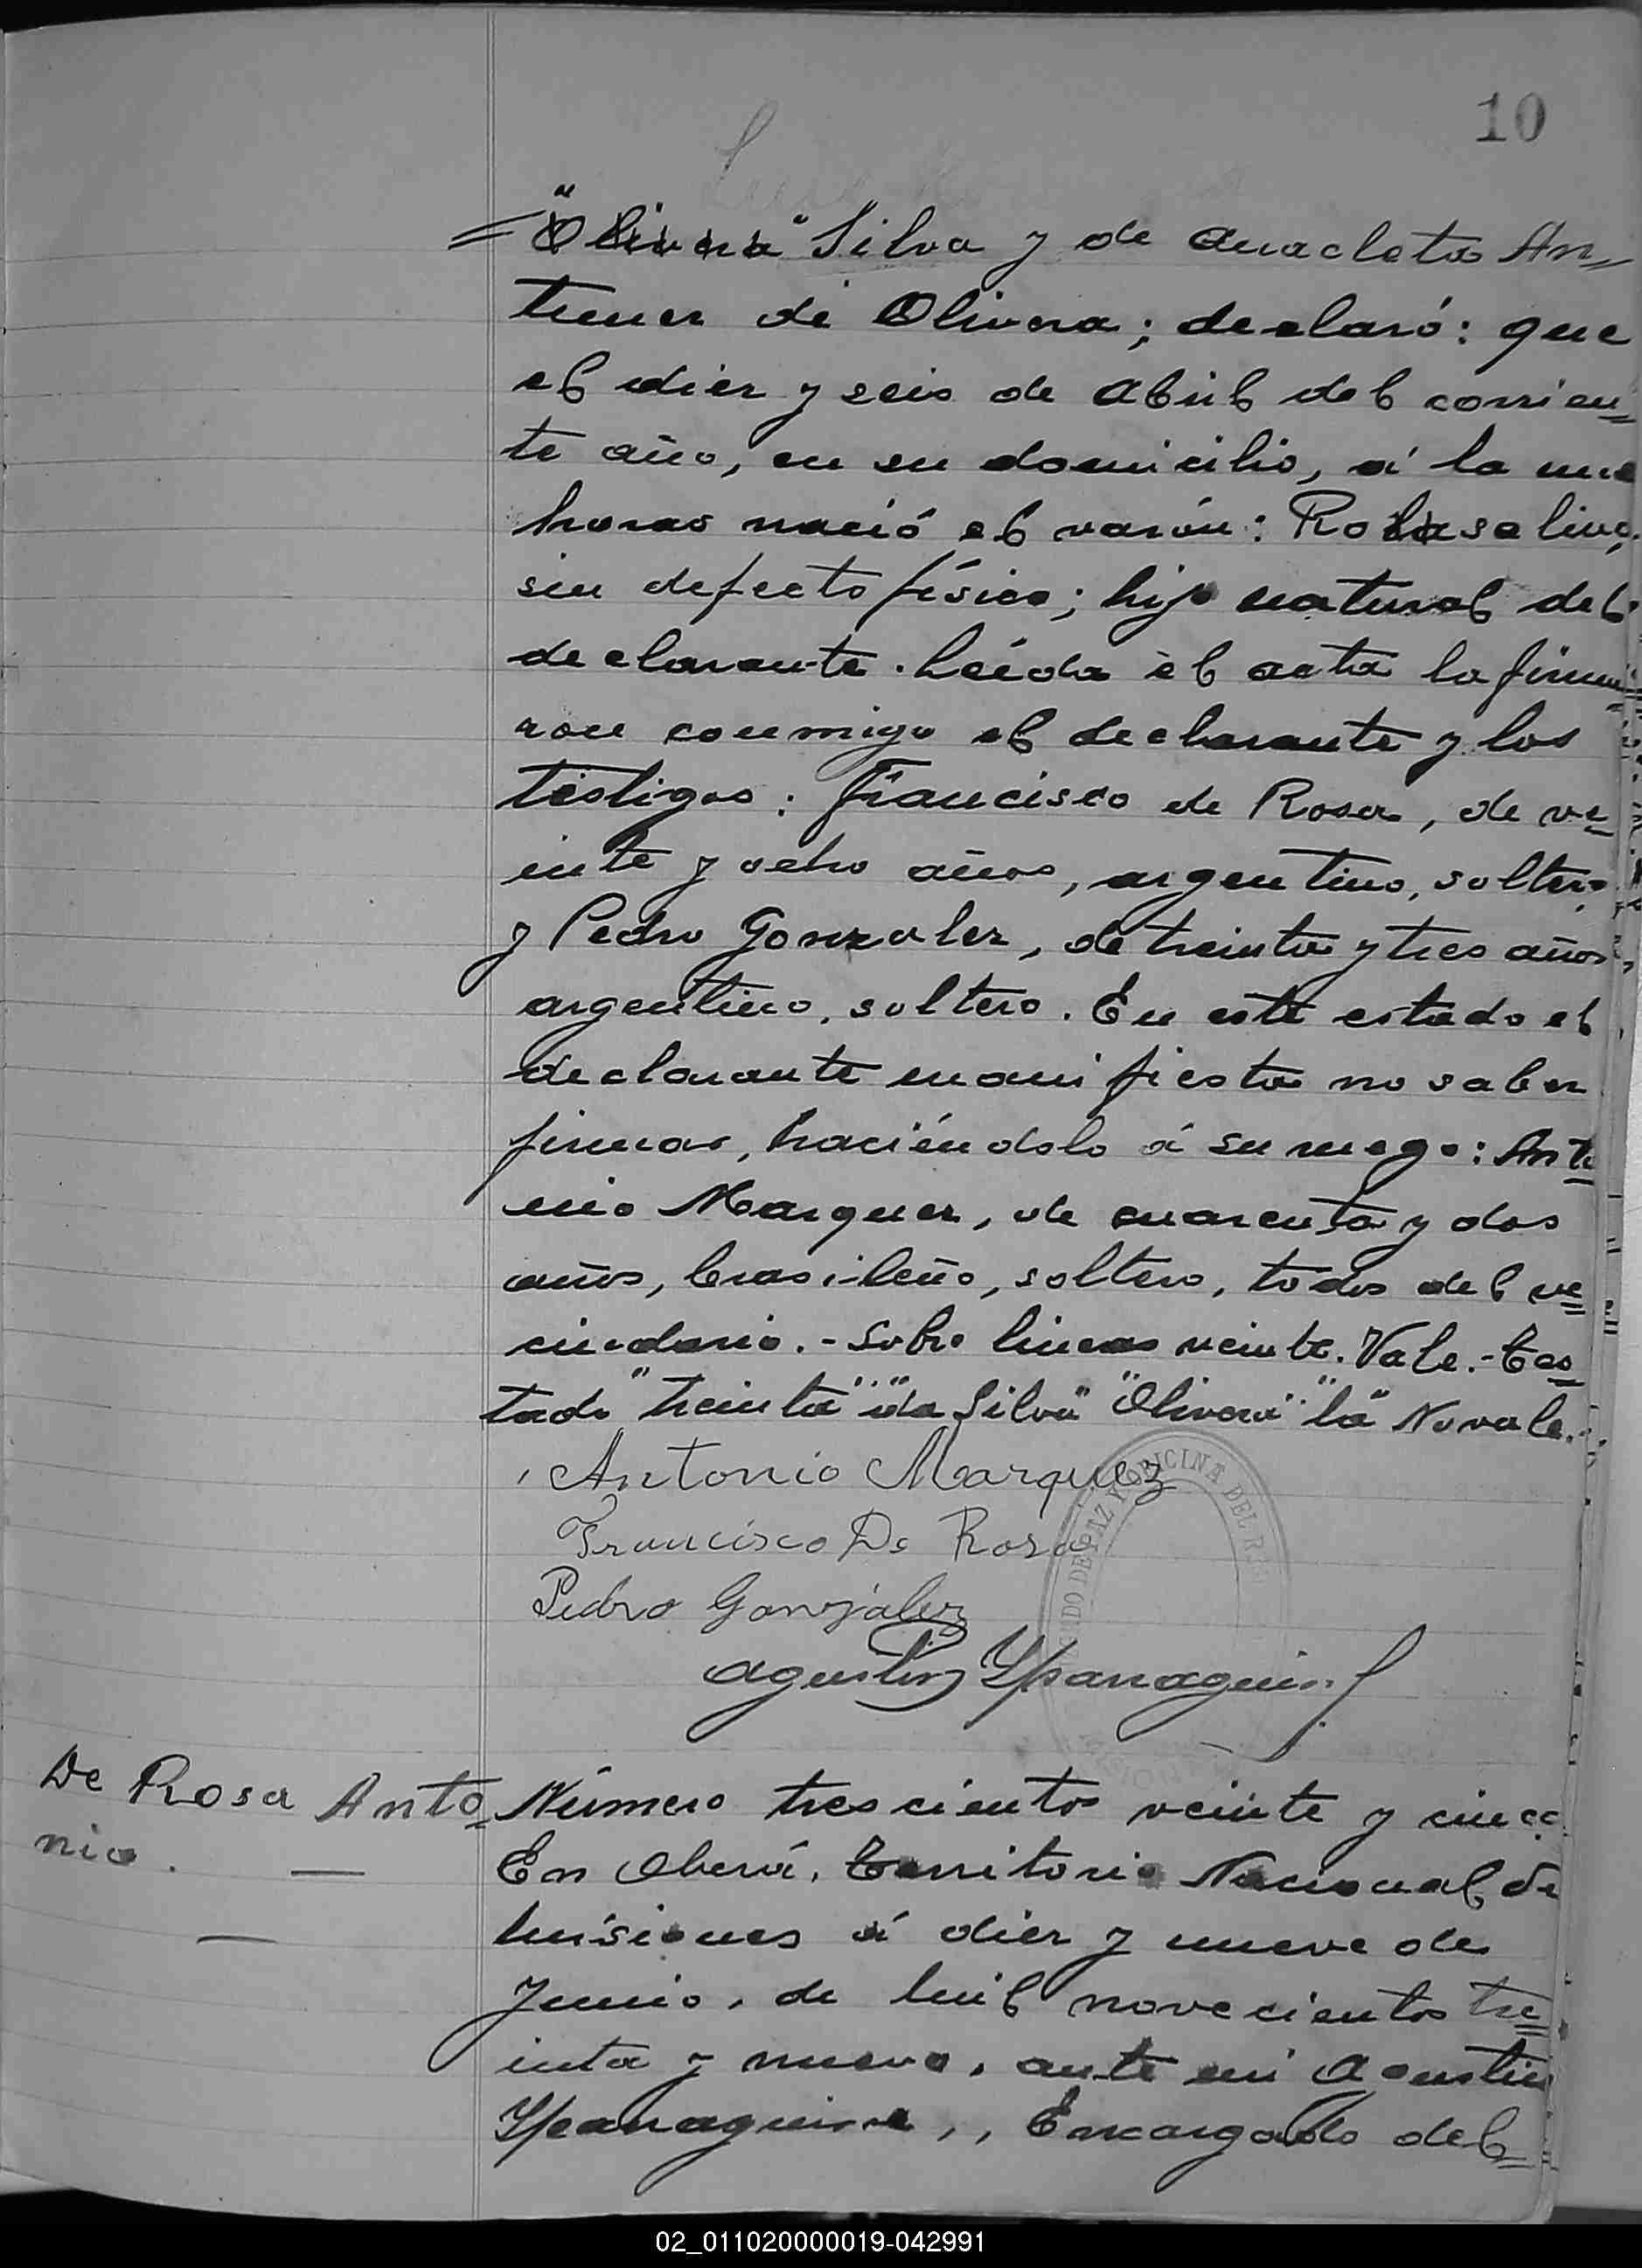 10
"Olivera" Silva y de Anacleta An=
tunez de Olivera; declaró: que
el diez y seis de Abril del corrien=
te año, en su domicilio, á la una
horas nació el varón: Rolasalino,
sin defecto físico; hijo natural del
declarante. Leída el acta la firma=
ron conmigo el declarante y los
testigos: Francisco de Rosa, de ve=
inte y ocho años, argentino, soltero,
y Pedro Gonzalez, de treinta y tres años,
argentino, soltero. En este estado el
declarante manifiesta no saber
firmar, haciéndolo á su ruego: Anto=
nio Marquez, de cuarenta y dos
años, brasileño, soltero, todos del ve=
cindario.- Sobre lineas veinte. Vale.- Tes=
tado "treinta" "da Silva" "Olivera" "la" No vale.
Antonio Marquez
Francisco De Rosa
Pedro González
Agustin Ysparraguirre
JUZGADO DE PAZ Y OFICINA DEL
De Rosa Anto=
nio. —
Número trescientos veinte y cinco.
En Oberá, Territorio Nacional de
Misiones á diez y nueve de
Junio, de mil novecientos tre=
inta y nueve, ante mi Agustin
Ysparraguirre,, Encargado del=
02_011020000019-042991